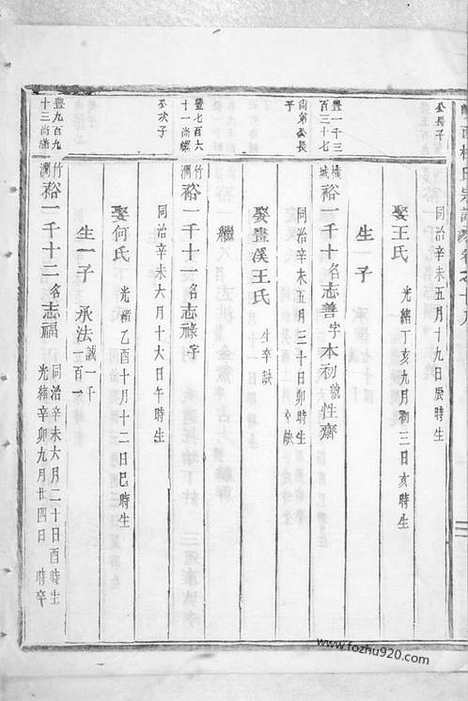 公長子
同治辛未五月十九日辰時生
娶王氏
光緒丁亥九月初三日亥時生
生一子
豐一千三百三十七
南弟公長子
橫城
裕一千十名志善字本初號性齋
同治辛未五月三十日卯時生
卒缺
娶畫溪王氏
生卒缺
繼
豐七百六十一尚
公次子
竹澗
裕一千十一名志祿字
同治辛未六月十六日午時生
娶何氏
光緒乙酉十月十二日巳時生
生一子
承法誠一千一百一
豐九百九十三尚
竹澗
裕一千十二名志福
同治辛未六月二十日酉時生
光緒辛卯九月廿四日 時卒
www.fozhu920.com